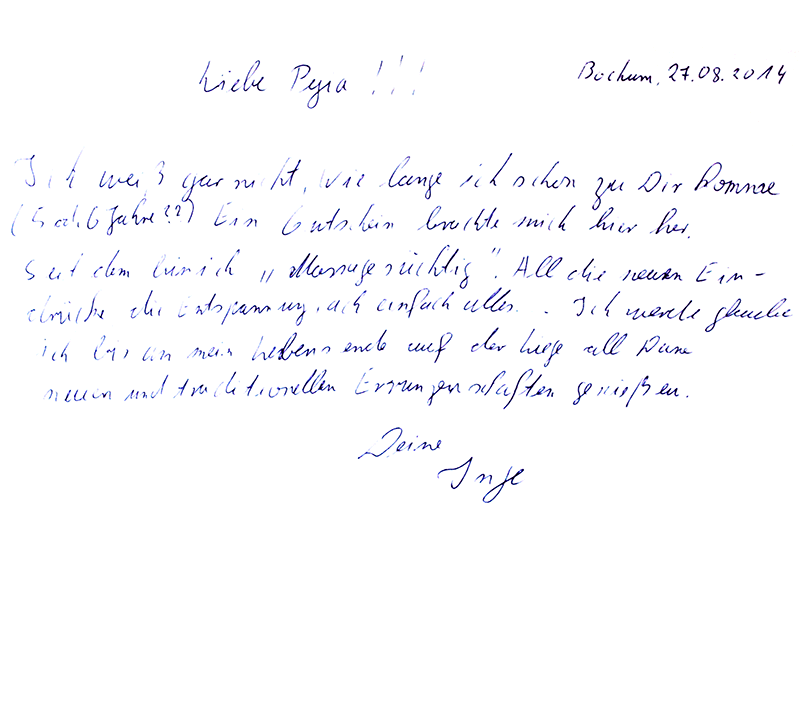 Liebe Peyra !!! Bochum, 27.08.2014
Ich weiß gar nicht, wie lange ich schon zu Dir komme
(5 od. 6 Jahre??) Ein Gutschein brachte mich hier her.
Seit dem bin ich „Massagesüchtig". All die neuen Ein-
drücke die Entspannung, ach einfach alles. Ich werde glaube
ich bis an mein Lebensende auf der Liege all Deine
neuen und traditionellen Errungenschaften genießen.
Deine
Inge